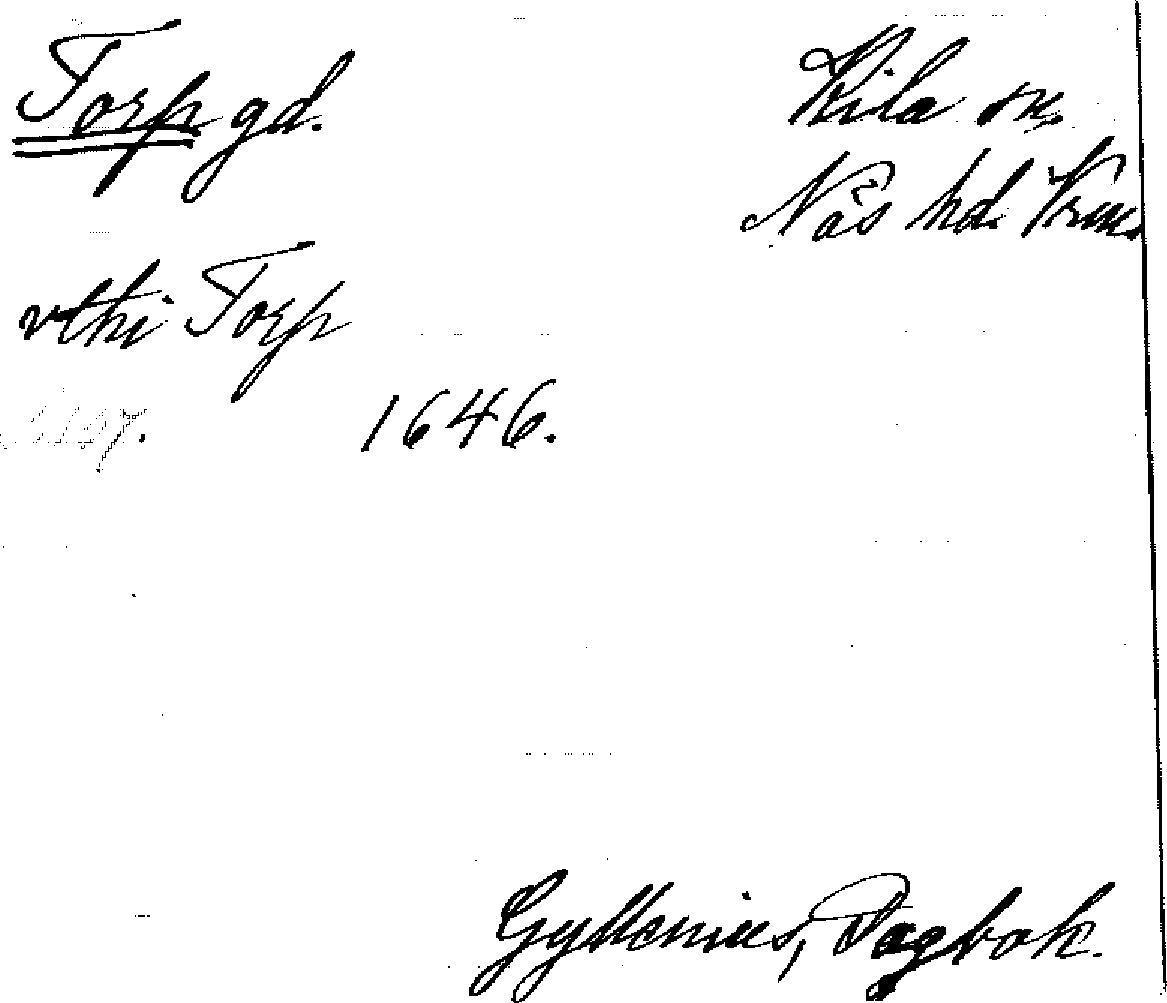 Torp gd.
Kila sn.
Näs hd. Vrm.
vthi Torp
1646.
Gyllenius, Dagbok.